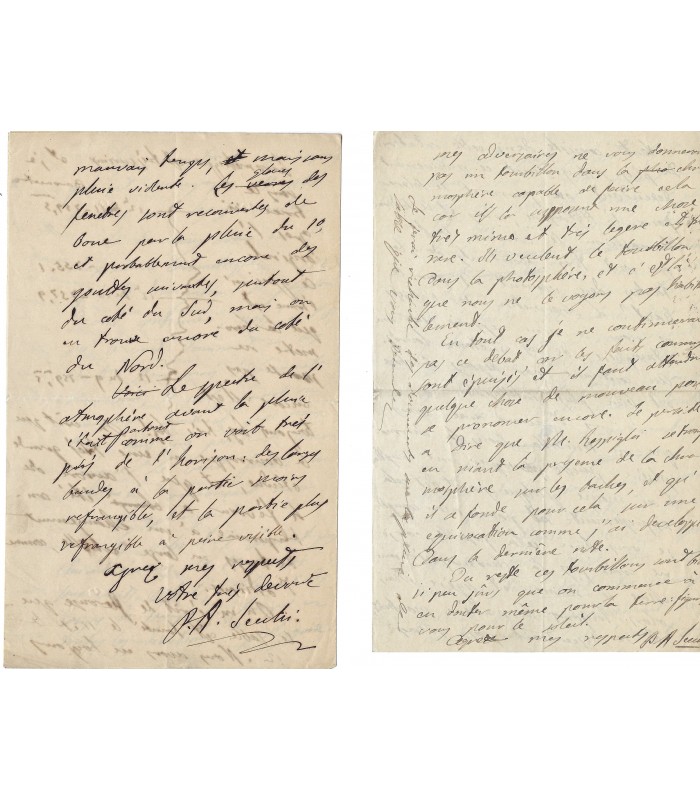 mauvais temps, et mais sans
pluie violente. Les verres glaces des
fenetres sont recouvertes de
boue par la pluie du 10,
et probablement encore des
gouttes suivantes, surtout
du coté du Sud, mais on
en trouve encore du coté
du Nord.
Voici Le spectre de l'
atmosphère avant la pluie
était partout comme on voit tres
près de l'horison: des larges
bandes à la partie moins
refrangible, et la portie plus
refrangible à peine visible.
Agreez mes respects
votre tres devoué
P. A. Secchi.
mes adversaires ne vous donnent
pas un tourbillon dans la
mosphère capable de faire cela
car ils la supposent une chose
très mince et très legere et très
rare. Ils veulent le tourbillon
dans la photosphère, et c'est là
que nous ne le voyons pas
lement.
En tout cas je ne continuerai
pas ce debat car les faits connus
sont épuisés et il faut attendre
quelque chose de nouveau pour
se prononcer encore. Je
a dire que Mr. Respighi
en niant la presence de la chro
mosphère sur les taches, et qu'
il a fondé pour cela sur une
equivocation comme j'ai developpé
dans la dernière note.
Du reste ces tourbillons sont
si peu sûrs que on commence à
en douter même pour la terre:
vous pour le soleil.
Agreez mes respects P A Secchi